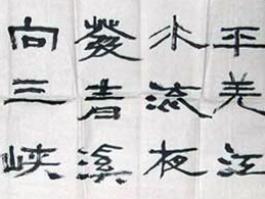 平羌江
水流夜
發青溪
向三峽